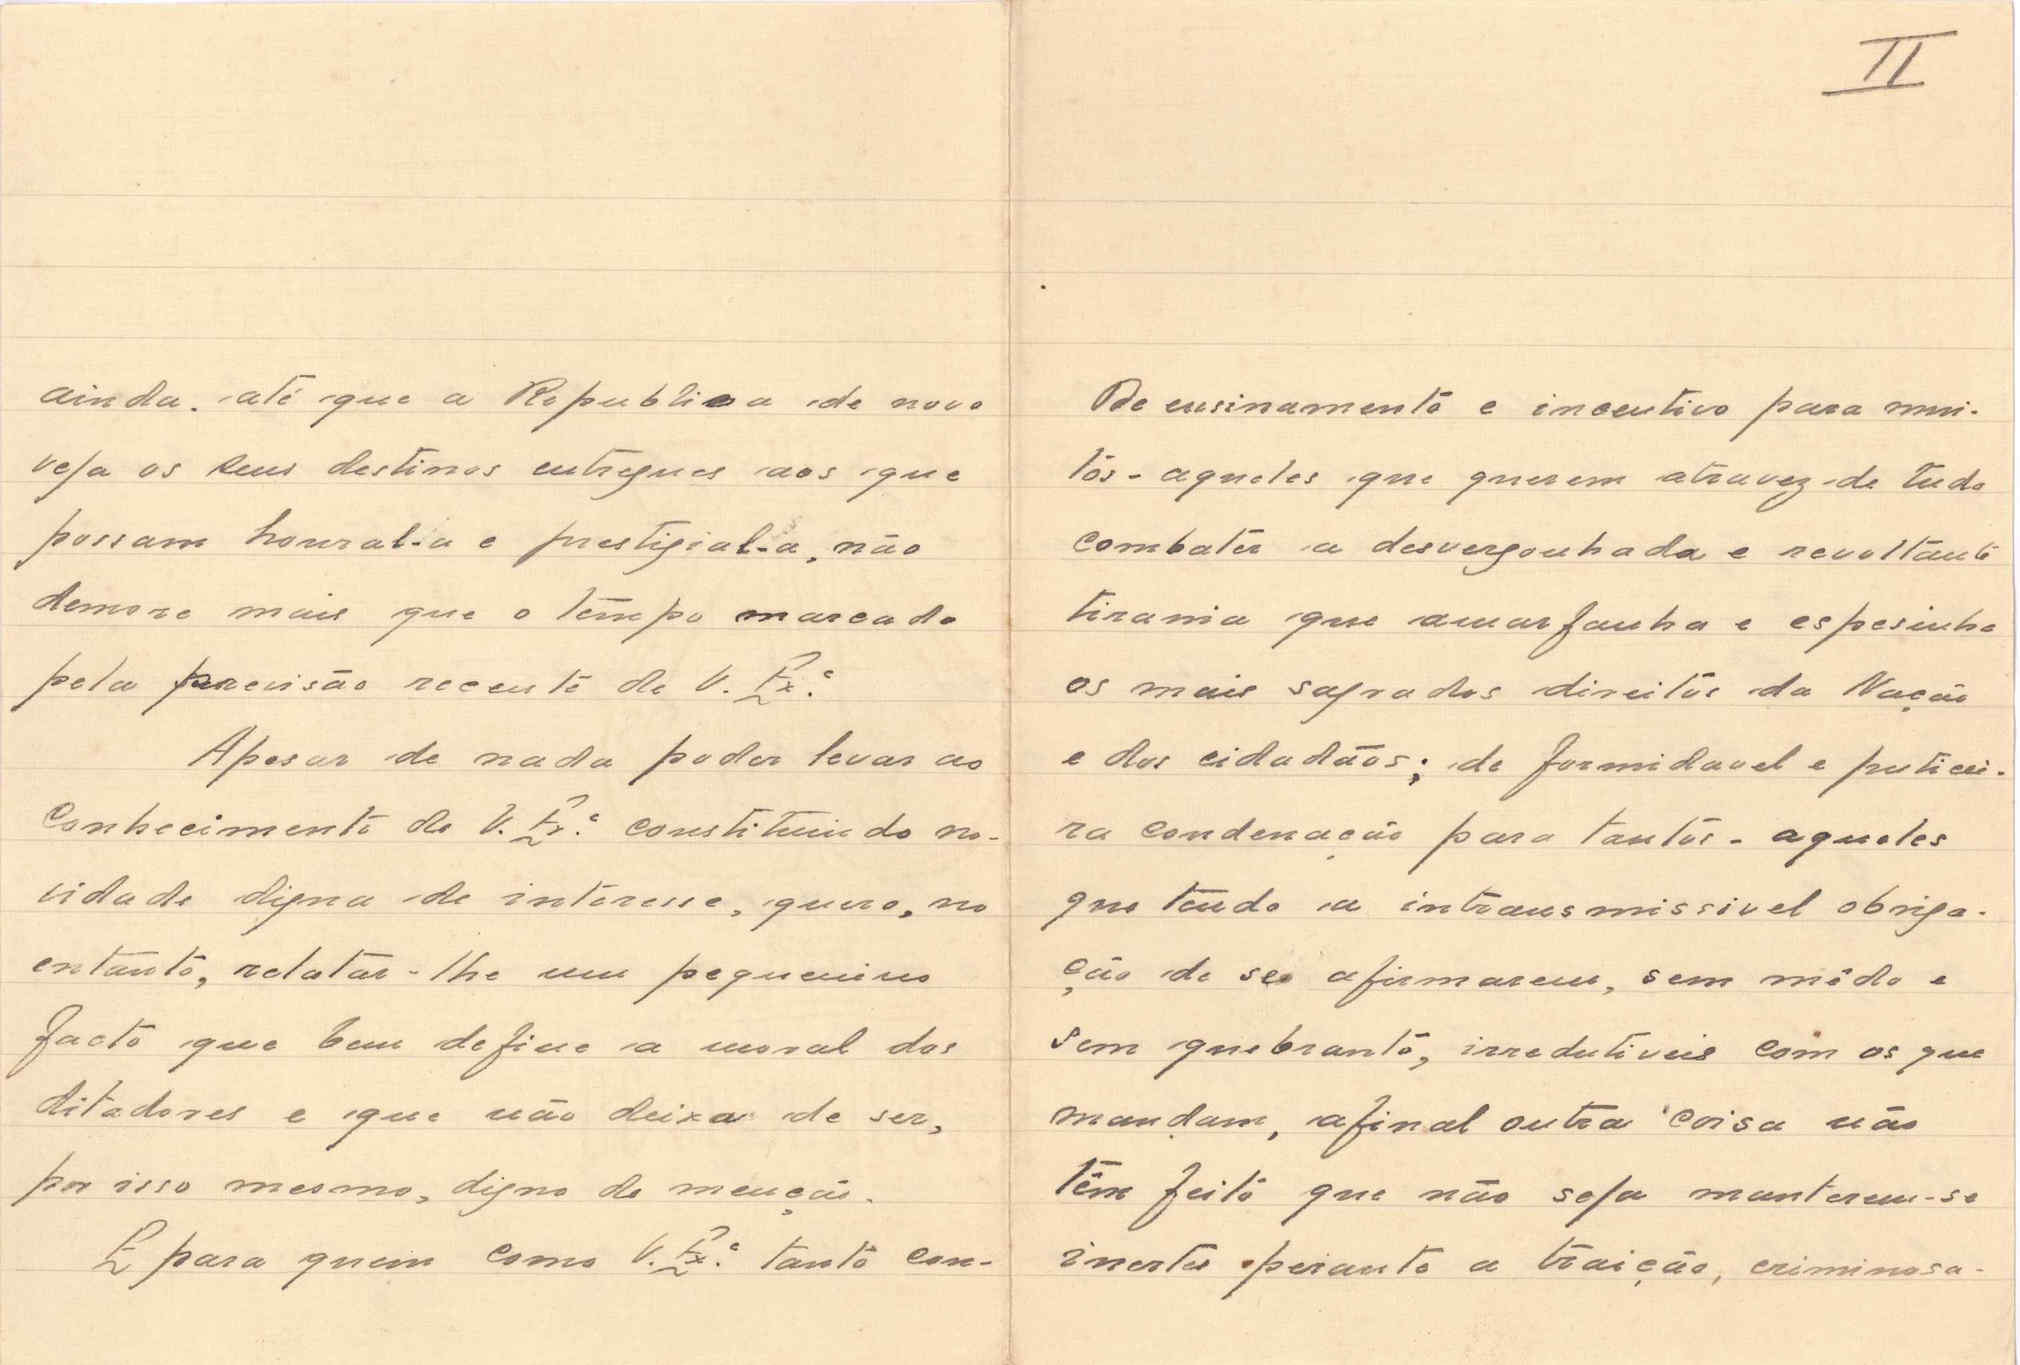 ainda. até que a Republica de novo
veja os seus destinos entregues aos que
possam honral-a e prestigial-a, não
demore mais que o tempo marcado
pela precisão recente de V. Ex.ª
Apesar de nada poder levar ao
conhecimento de V. Ex.ª constituindo no-
vidade digna de interesse, quero, no
entanto, relatar-lhe um pequenino
facto que bem define a moral dos
ditadores e que não deixa de ser,
por isso mesmo, digno de menção.
E para quem como V. Ex.ª tanto con-
II
De ensinamento e incentivo para mui-
tos - aqueles que querem atravez de tudo
combater a desvergonhada e revoltante
tirania que amarfanha e espesinha
os mais sagrados direitos da Nação
e dos cidadãos; de formidavel e
ra condenação para tantos - aqueles
que tendo a intransmissivel obriga-
ção de se afirmarem, sem mêdo e
sem quebranto, irredutiveis com os que
mandam, afinal outra coisa não
têm feito que não seja manterem-se
inertes perante a traição, criminosa-